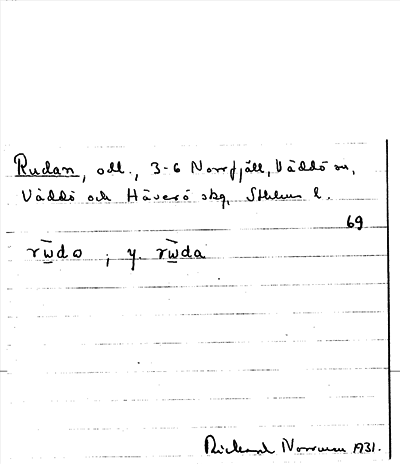 Rudan, odl., 3-6 Norrfjäll, Väddö sn,
Väddö och Häverö skg, Sthlms l.
69
rw̲̄do ; y. rw̲̄da
Rickard Norrman 1931.